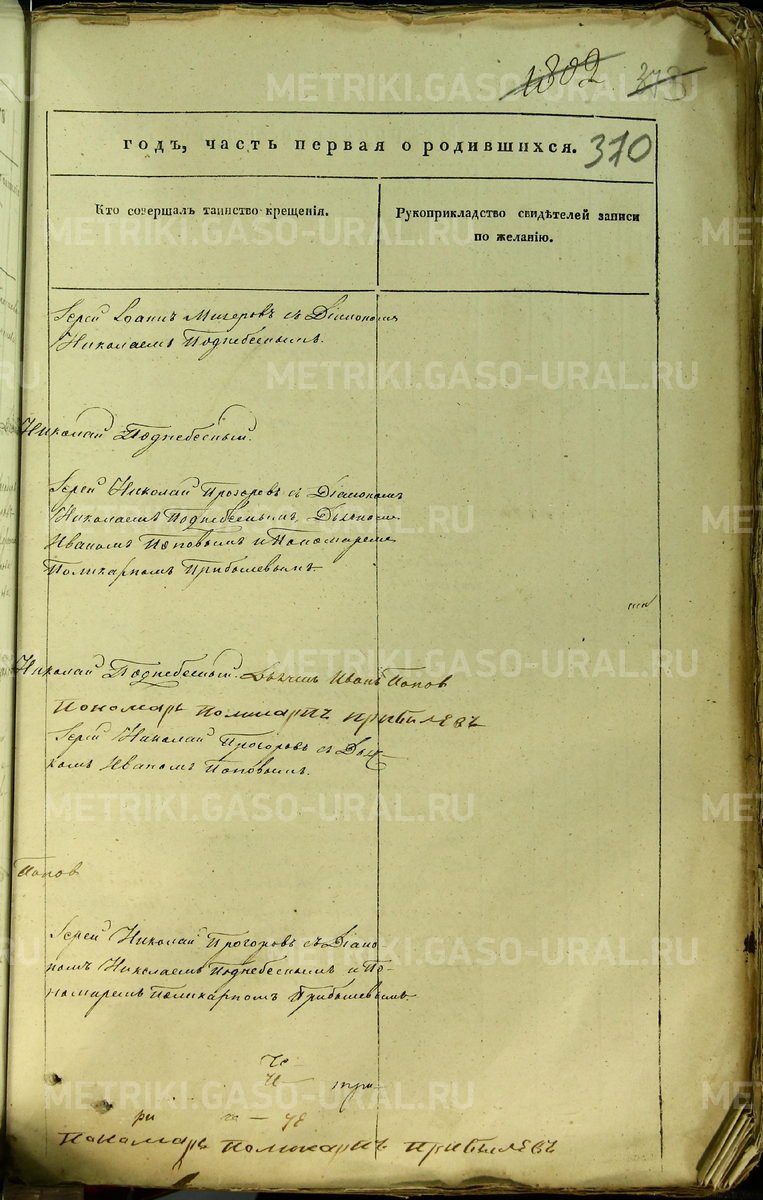 1802 373
370
годъ, часть первая о родившихся.
Кто совершалъ таинство крещенія.
Рукоприкладство свидѣтелей записи
по желанію.
Іерей Іоаннъ съ Діакономъ
Николаемъ Поднебеснымъ.
Николай Поднебесный.
Іерей Николай Прозоровъ съ Діакономъ
Николаемъ Поднебеснымъ, Дьячкомъ
Иваномъ Поповымъ и Пономаремъ
Поликарпомъ Прибылевымъ.
Николай Поднебесный. Дьячекъ Иванъ Попов
Пономарь Поликарпъ Прибылевъ
Іерей Николай Прозоровъ съ Дьяч-
комъ Иваномъ Поповымъ.
Попов
Іерей Николай Прозоровъ съ Діако-
номъ Николаемъ Поднебеснымъ и По-
номаремъ Поликарпомъ Прибылевымъ.
Пономарь Поликарпъ Прибылевъ
METRIKI.GASO-URAL.RU